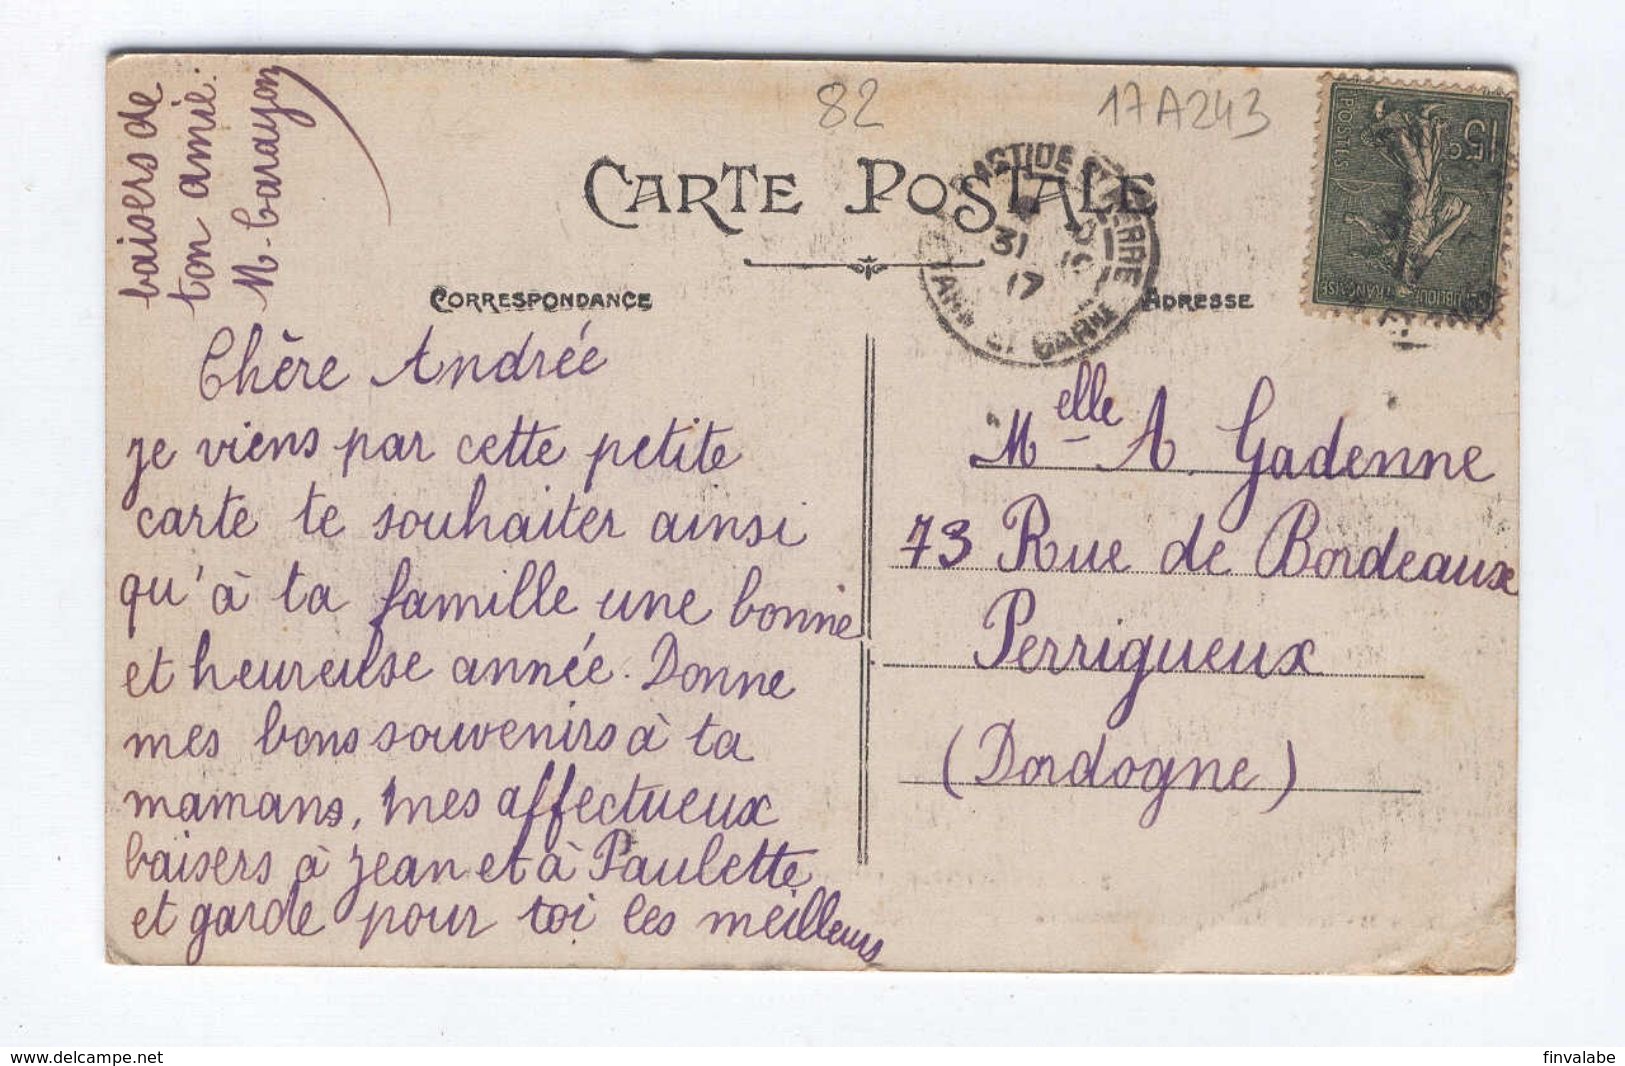 82
17A243
CARTE POSTALE
CORRESPONDANCE
ADRESSE
POSTES
15c
FRANÇAISE
31
17
TARN ET GARNE
Chère Andrée
je viens par cette petite
carte te souhaiter ainsi
qu'à ta famille une bonne
et heureuse année. Donne
mes bons souvenirs à ta
mamans, mes affectueux
baisers à Jean et à Paulette
et garde pour toi les meilleurs
baisers de
ton amie.
M. Carayon
Melle A. Gadenne
73 Rue de Bordeaux
Perrigueux
(Dordogne)
www.delcampe.net
finvalabe